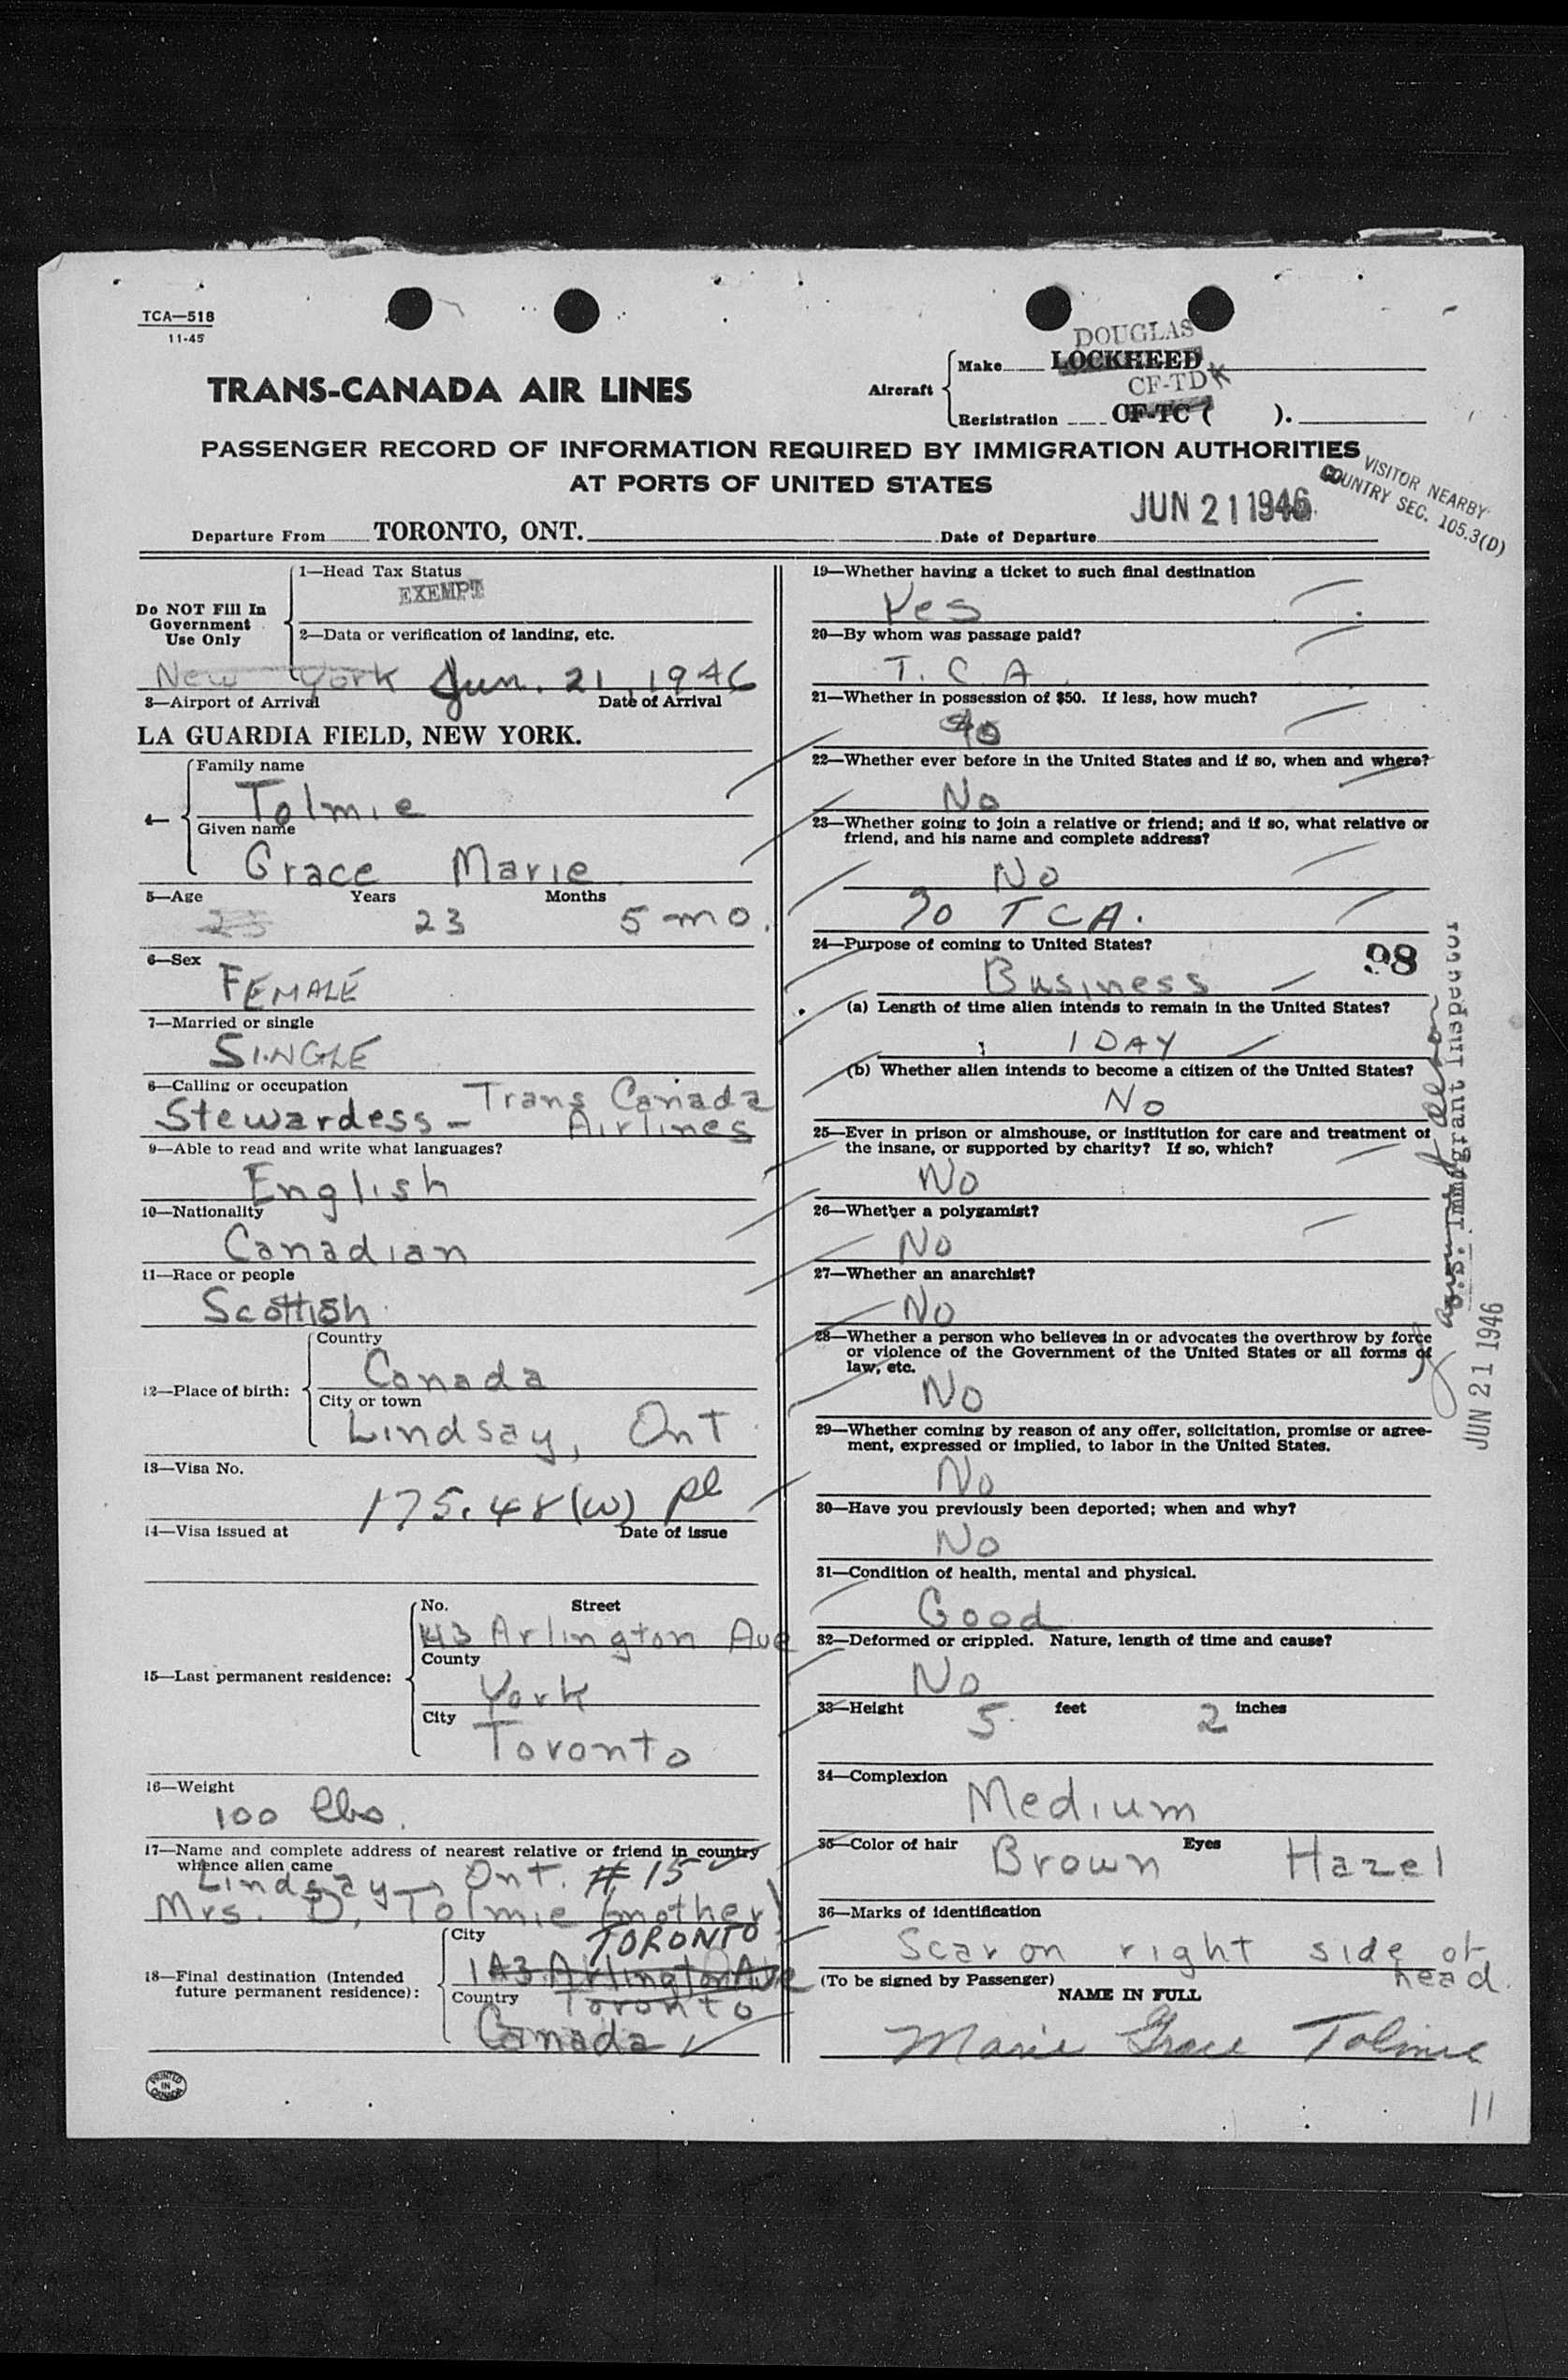 TCA—518
11-45
TRANS-CANADA AIR LINES
DOUGLAS
Aircraft
Make LOCKHEED
CF-TDK
Registration CF-TC ( ).
PASSENGER RECORD OF INFORMATION REQUIRED BY IMMIGRATION AUTHORITIES
AT PORTS OF UNITED STATES
VISITOR NEARBY
COUNTRY SEC. 105.3(D)
JUN 21 1946
Departure From TORONTO, ONT. Date of Departure
Do NOT Fill In
Government
Use Only
1—Head Tax Status
EXEMPT
2—Data or verification of landing, etc.
New York Jun. 21, 1946
3—Airport of Arrival Date of Arrival
LA GUARDIA FIELD, NEW YORK.
4—
Family name
Tolmie
Given name
Grace Marie
5—Age Years Months
23 23 5 mo.
6—Sex
FEMALE
7—Married or single
SINGLE
8—Calling or occupation
Stewardess - Trans Canada
Airlines
9—Able to read and write what languages?
English
10—Nationality
Canadian
11—Race or people
Scottish
12—Place of birth:
Country
Canada
City or town
Lindsay, Ont
13—Visa No.
175.48(W) pl
14—Visa issued at Date of issue
15—Last permanent residence:
No. Street
143 Arlington Ave
County
York
City
Toronto
16—Weight
100 lbs.
17—Name and complete address of nearest relative or friend in country
whence alien came
Lindsay, Ont. #15
Mrs. D. Tolmie (mother)
18—Final destination (Intended
future permanent residence):
City
TORONTO
143 Arlington Ave
Country Toronto
Canada
PRINTED
IN
CANADA
19—Whether having a ticket to such final destination
Yes
20—By whom was passage paid?
T. C A
21—Whether in possession of $50. If less, how much?
22—Whether ever before in the United States and if so, when and where?
No
23—Whether going to join a relative or friend; and if so, what relative or
friend, and his name and complete address?
No
% TCA.
24—Purpose of coming to United States?
98
Business
(a) Length of time alien intends to remain in the United States?
1 DAY
(b) Whether alien intends to become a citizen of the United States?
No
25—Ever in prison or almshouse, or institution for care and treatment of
the insane, or supported by charity? If so, which?
No
26—Whether a polygamist?
No
27—Whether an anarchist?
No
28—Whether a person who believes in or advocates the overthrow by force
or violence of the Government of the United States or all forms of
law, etc.
No
29—Whether coming by reason of any offer, solicitation, promise or agree-
ment, expressed or implied, to labor in the United States.
No
30—Have you previously been deported; when and why?
No
31—Condition of health, mental and physical.
Good
32—Deformed or crippled. Nature, length of time and cause?
No
33—Height 5 feet 2 inches
34—Complexion
Medium
35—Color of hair Brown Eyes Hazel
36—Marks of identification
Scar on right side of
head.
(To be signed by Passenger)
NAME IN FULL
Marie Grace Tolmie
11
U.S. Immigrant Inspector
JUN 21 1946